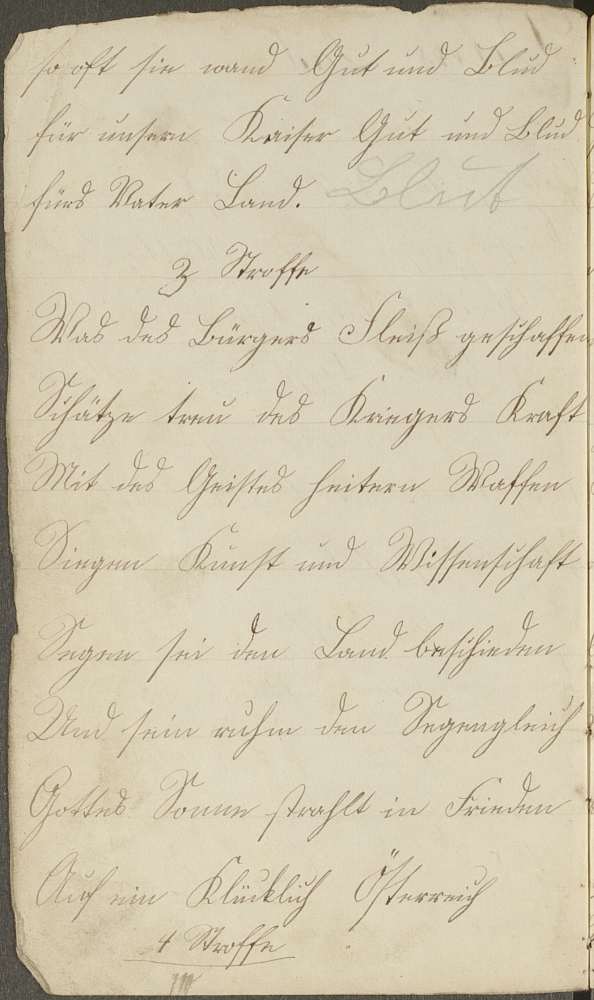 so oft sie wand Gut und Blud
für unsern Kaiser Gut und Blud
fürs Vater Land. Blut
3 Stroffe
Was des Bürgers Fleiß geschaffen
Schätze treu des Kriegers Kraft
Mit des Geistes heitern Waffen
Siegen Kunst und Wissenschaft
Segen sei den Land beschieden
Und sein ruhm den Segengleich
Gottes Sonne strahlt in Frieden
Auf ein Klücklich Österreich
4 Stroffe